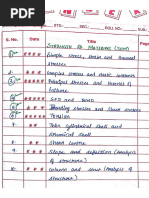 I N D E X
STD.: SEC.: ROLL NO.: SUB.:
S. No. Date Title Page
Strength of Material (SOM)
Simple stress, strain and thermal
stresses
Complex stress and elastic constants
Principal stresses and theories of
failure
SFD and BMD
Bending stresses and shear stresses
Torsion
Thin cylindrical shell and
spherical shell
Shear centre
Slope and deflection (analysis
of structure)
Column and cons (analysis of
structure)